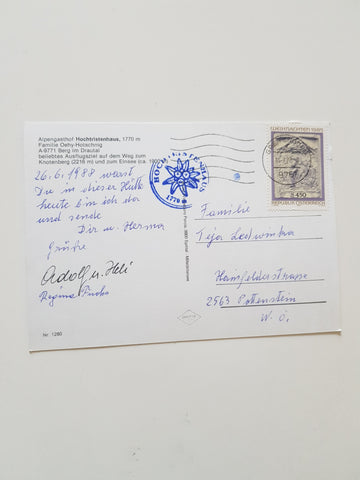 Alpengasthof Hochtristenhaus, 1770 m
Familie Oehy-Hotsching
A-9771 Berg im Drautal
beliebtes Ausflugsziel auf dem Weg zum
Knotenberg (2216 m) und zum Einsee (ca.
26.6.1988 warst
Du in dieser Hütte
heute bin ich da
und sende
Dir u. Herma
Grüße
Adolf u. Heli
Regina Fuchs
Nr. 1280
HOCHTRISTENHAUS
1770 m
WEIHNACHTEN
S 4.50
REPUBLIK ÖSTERREICH
Familie
Hainfelderstrasse
2563 Pottenstein
N.Ö.